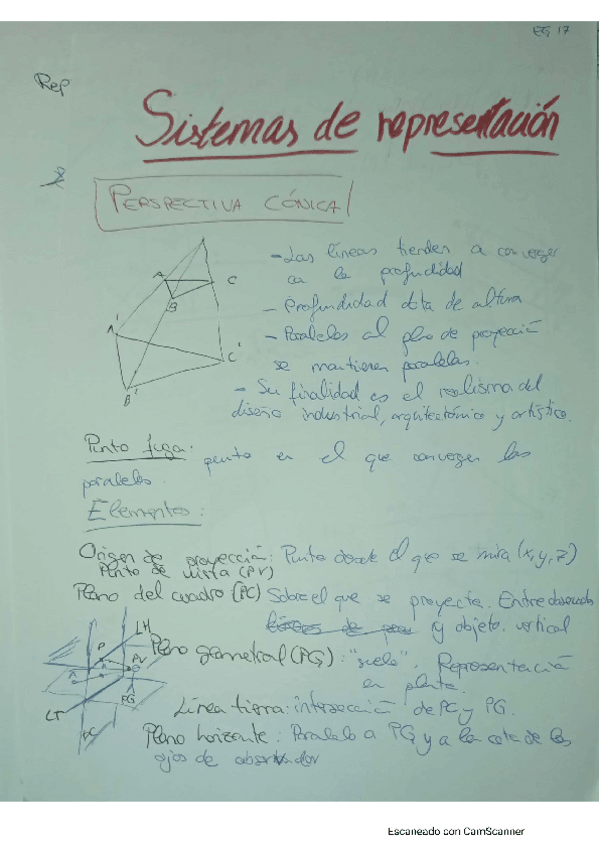 EG 17
Rep
Sistemas de representación
PERSPECTIVA CÓNICA
- Las líneas tienden a converger
en la profundidad
- Profundidad dota de altura
- Paralelos al plano de proyección
se mantienen paralelas.
- Su finalidad es el realismo del
diseño industrial, arquitectónico y artístico.
A
B
C
A'
B'
C'
Punto fuga: punto en el que convergen las
paralelas.
Elementos:
Origen de proyección: Punto desde el que se mira (x,y,z)
Punto de vista (PV)
Plano del cuadro (PC) Sobre el que se proyecta. Entre observador
y objeto. vertical
Plano geometral (PG): "suelo". Representación
en planta.
Línea tierra: intersección de PC y PG.
Plano horizonte: Paralelo a PG y a la cota de los
ojos de observador
LH
P
PV
PG
LT
PC
Escaneado con CamScanner